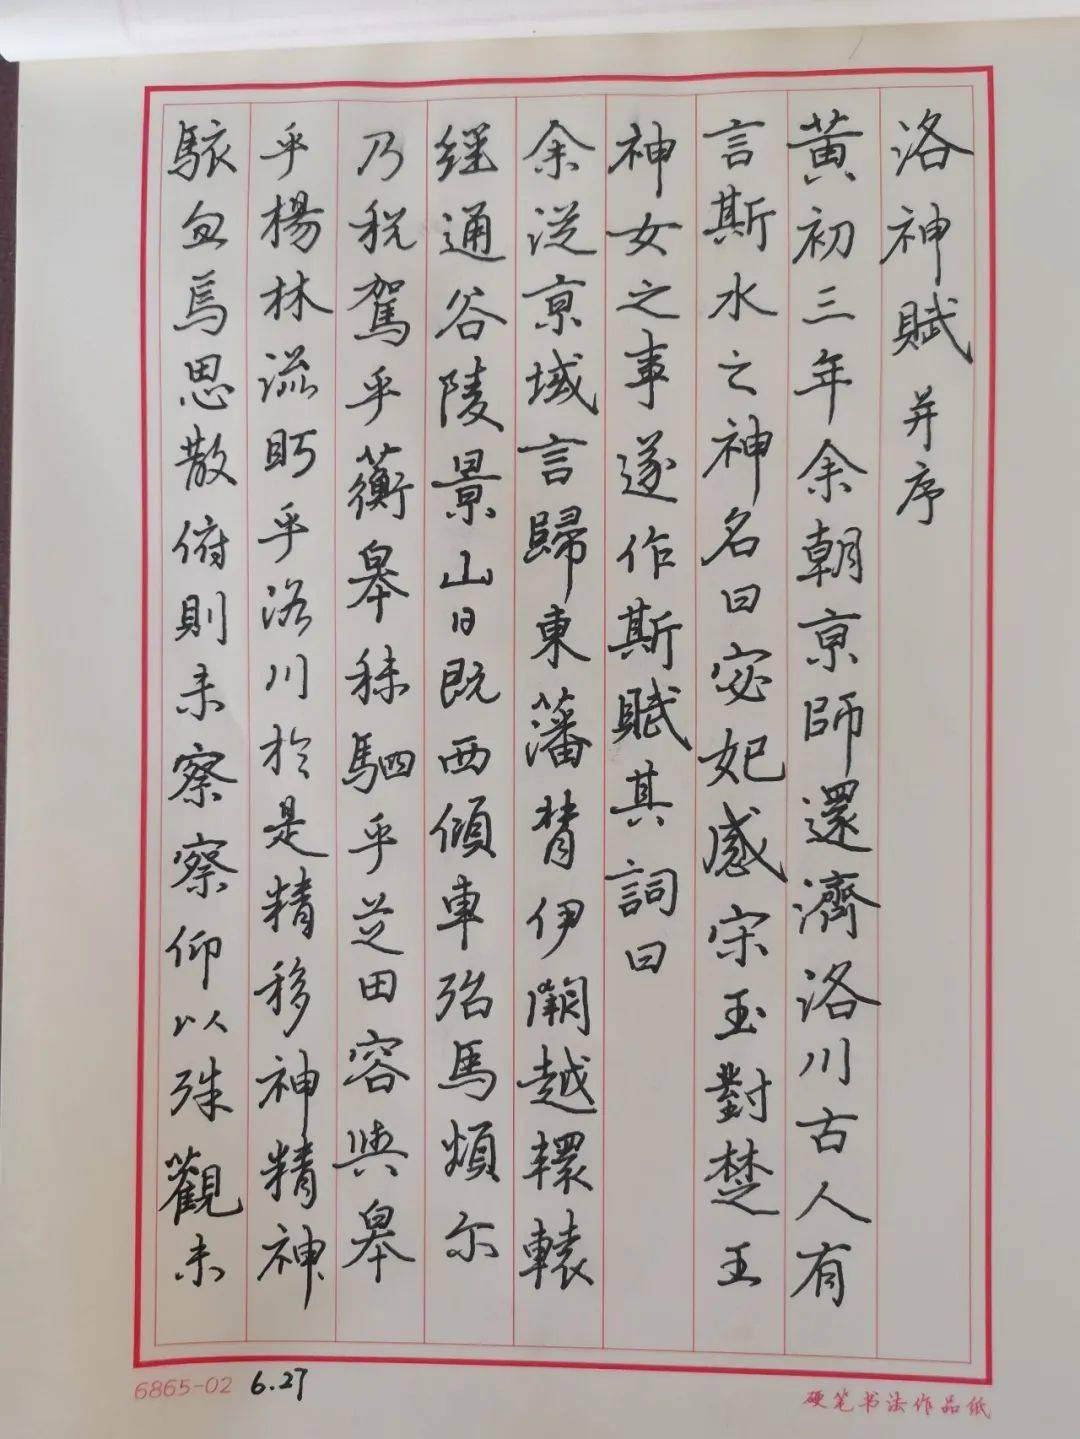 洛神賦 并序
黄初三年余朝京師還濟洛川古人有
言斯水之神名曰宓妃感宋玉對楚王
神女之事遂作斯賦其詞曰
余従京域言歸東藩背伊闕越轘轅
經通谷陵景山日既西傾車殆馬煩尓
乃税駕乎蘅皋秣駟乎芝田容與皋
乎楊林流眄乎洛川於是精移神精神
駭忽焉思散俯則未察察仰以殊觀未
6865-02 6.27
硬笔书法作品纸